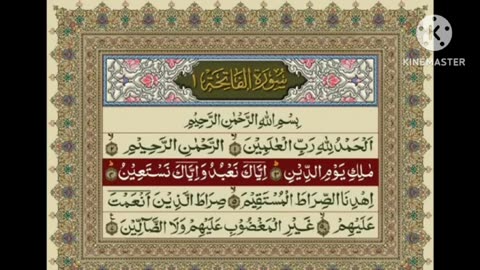 KINEMASTER
سُوْرَةُ الْفَاتِحَةِ ١
بِسْمِ اللّٰهِ الرَّحْمٰنِ الرَّحِيْمِ
اَلْحَمْدُ لِلّٰهِ رَبِّ الْعٰلَمِيْنَ ۝١ الرَّحْمٰنِ الرَّحِيْمِ ۝٢
مٰلِكِ يَوْمِ الدِّيْنِ ۝٣ اِيَّاكَ نَعْبُدُ وَاِيَّاكَ نَسْتَعِيْنُ ۝٤
اِهْدِنَا الصِّرَاطَ الْمُسْتَقِيْمَ ۝٥ صِرَاطَ الَّذِيْنَ اَنْعَمْتَ
عَلَيْهِمْ ۝٦ غَيْرِ الْمَغْضُوْبِ عَلَيْهِمْ وَلَا الضَّآلِّيْنَ ۝٧